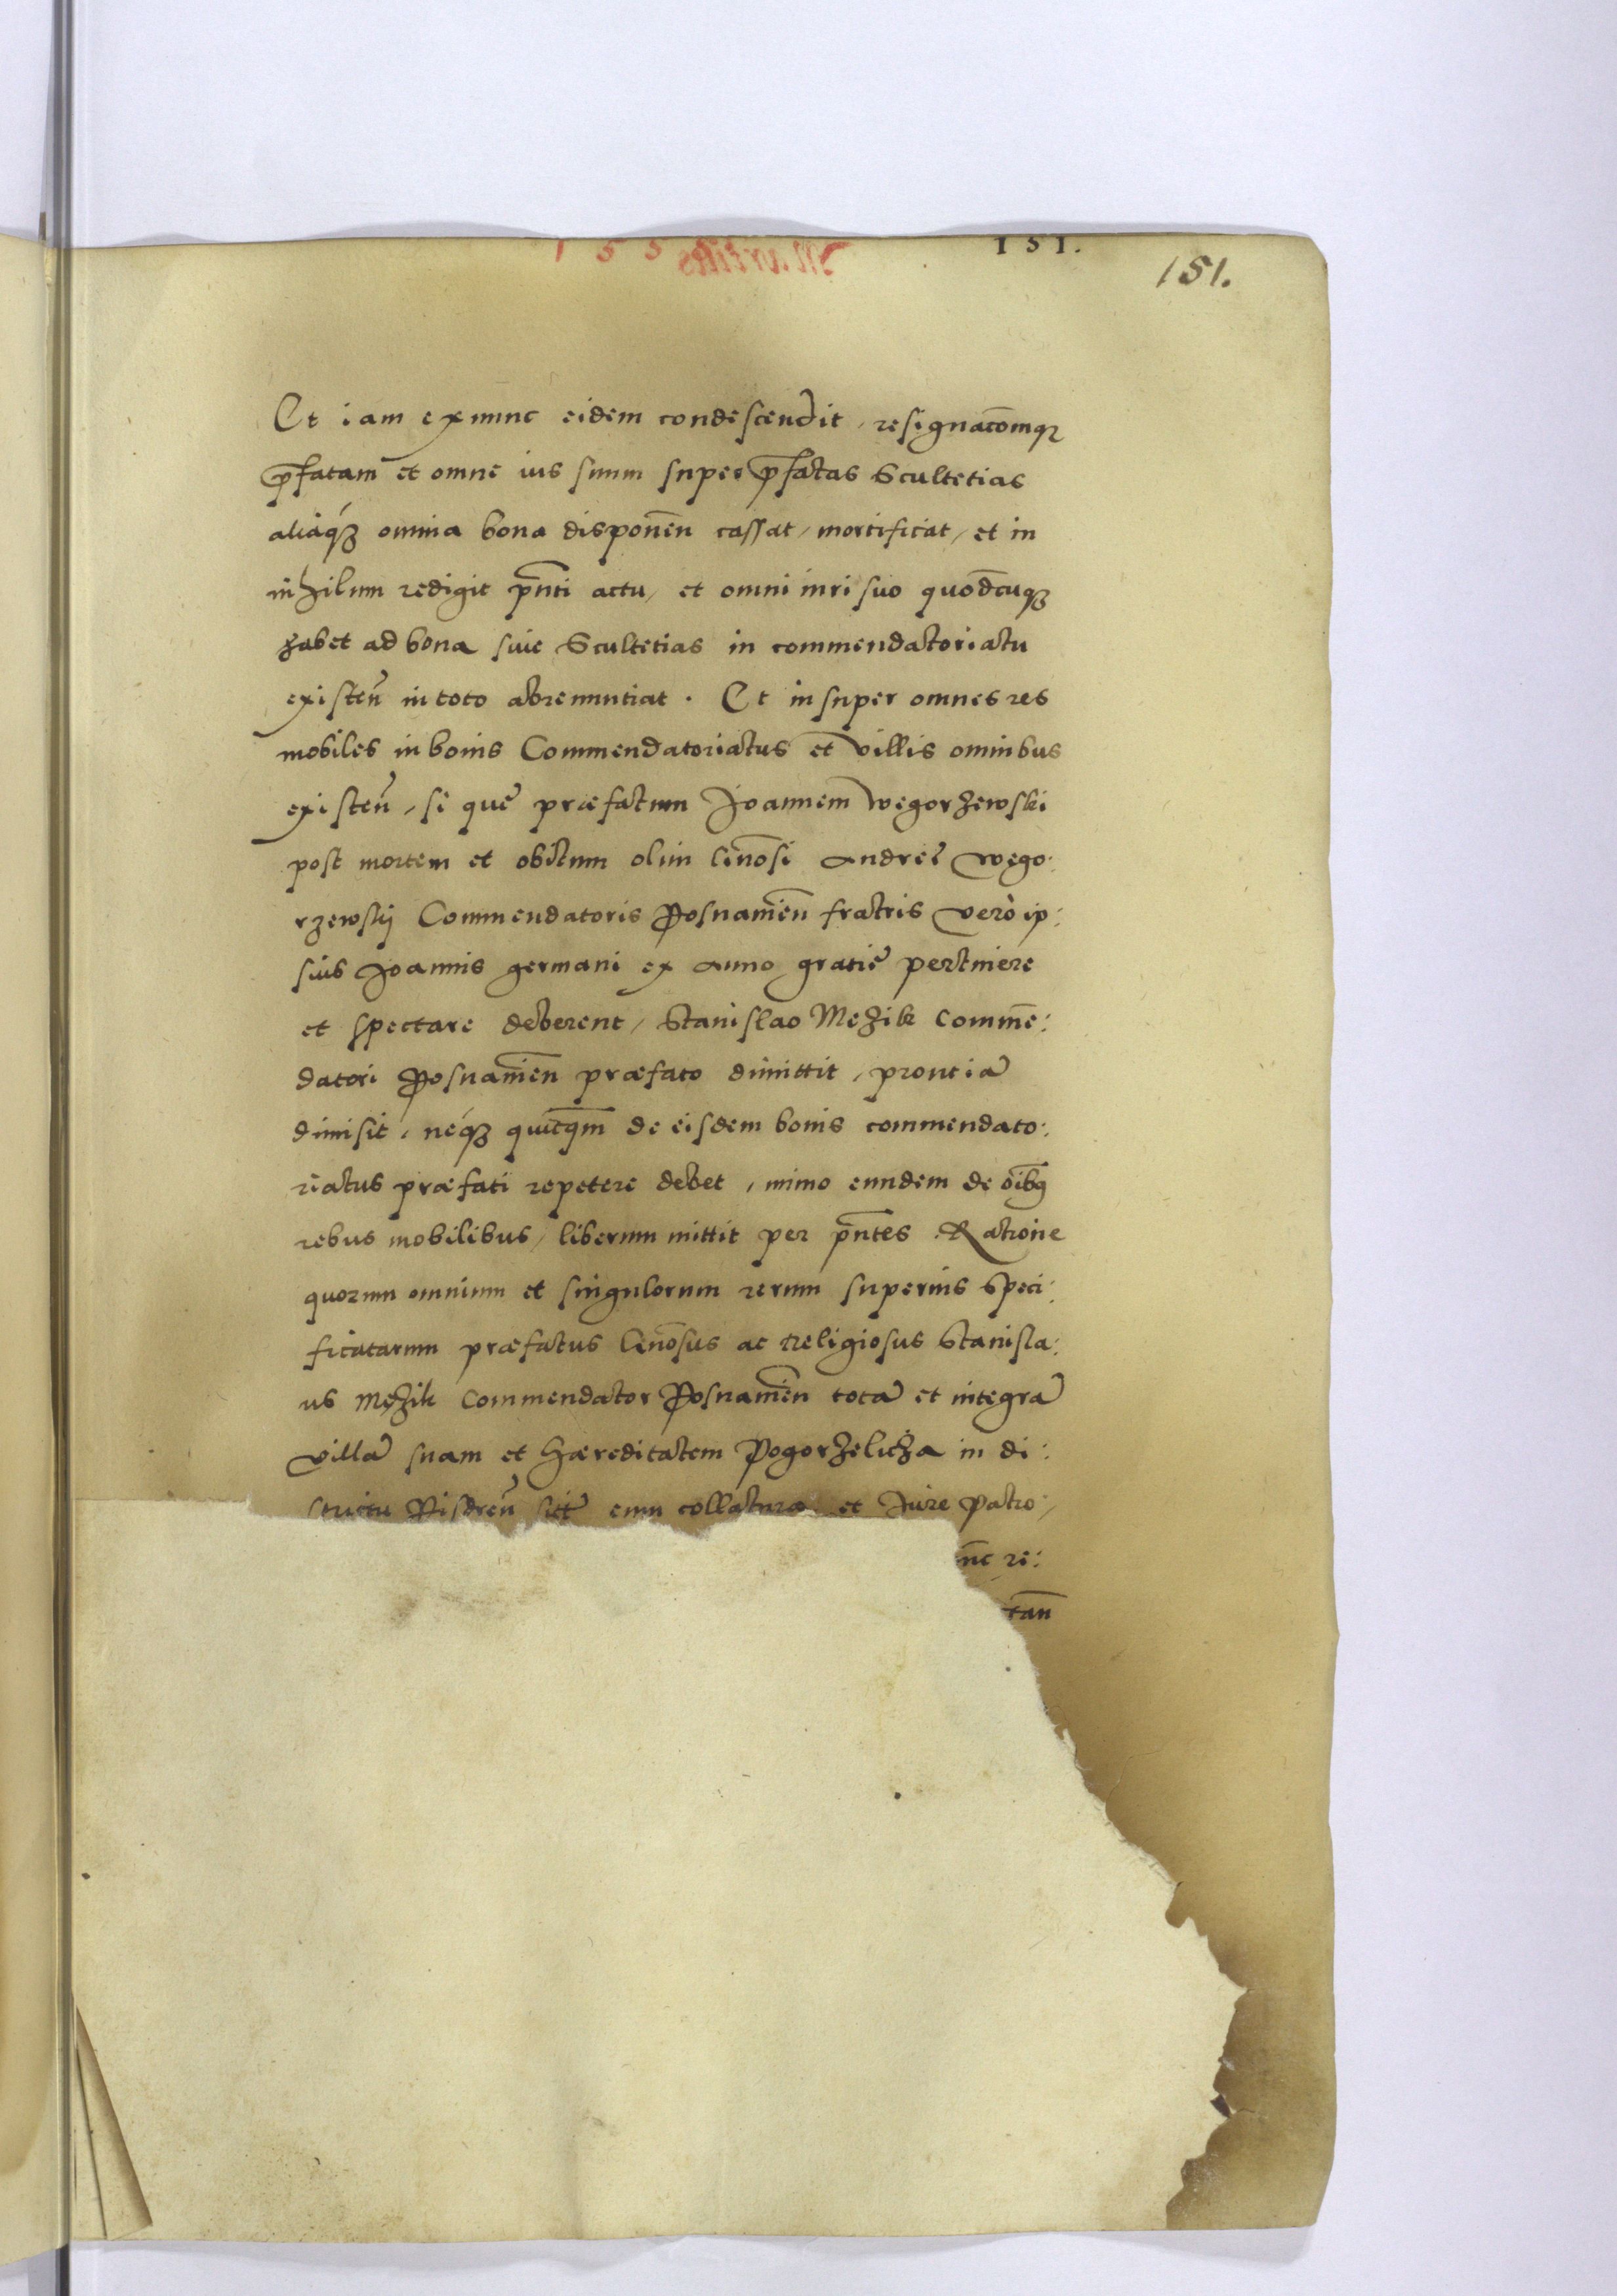 151.
151.
Et iam ex nunc eidem condescendit, resignacōmqȝ
p̄fatam et omne ius suum super p̄fatas Scultetias
aliaqȝ omnia bona disponen̄ cassat, mortificat, et in
nihilum redigit pn̄ti actu, et omni iuri suo quodcūqȝ
habet ad bona siue Scultetias in commendatoriatu
existen̄ in toto abrenuntiat. Et insuper omnes res
mobiles in bonis Commendatoriatus et villis omnibus
existen̄, si que præfatum Joannem Wegorzewski
post mortem et obitum olim Gn̄osi Andreę Wego:
rzewskj Commendatoris Posnanien̄ fratris verò ip:
sius Joannis germani ex Anno gratię pertinere
et spectare deberent, Stanislao Mezik Commē:
datori Posnanien̄ præfato dimittit, prout iā
dimisit, neqȝ quicq̄m de eisdem bonis commendato:
riatus præfati repetere debet, immo eundem de oībȝ
rebus mobilibus, liberum mittit per pn̄tes. Ratione
quorum omnium et singulorum rerum superius speci:
ficatarum præfatus Gn̄osus ac Religiosus Stanisla:
us Męzik Commendator Posnanien̄ totā et integrā
villā suam et Hæreditatem Pogorzelicza in di:
strictu Pisdren̄ sitā cum collatura et Jure Patro:
nc re:
tan̄